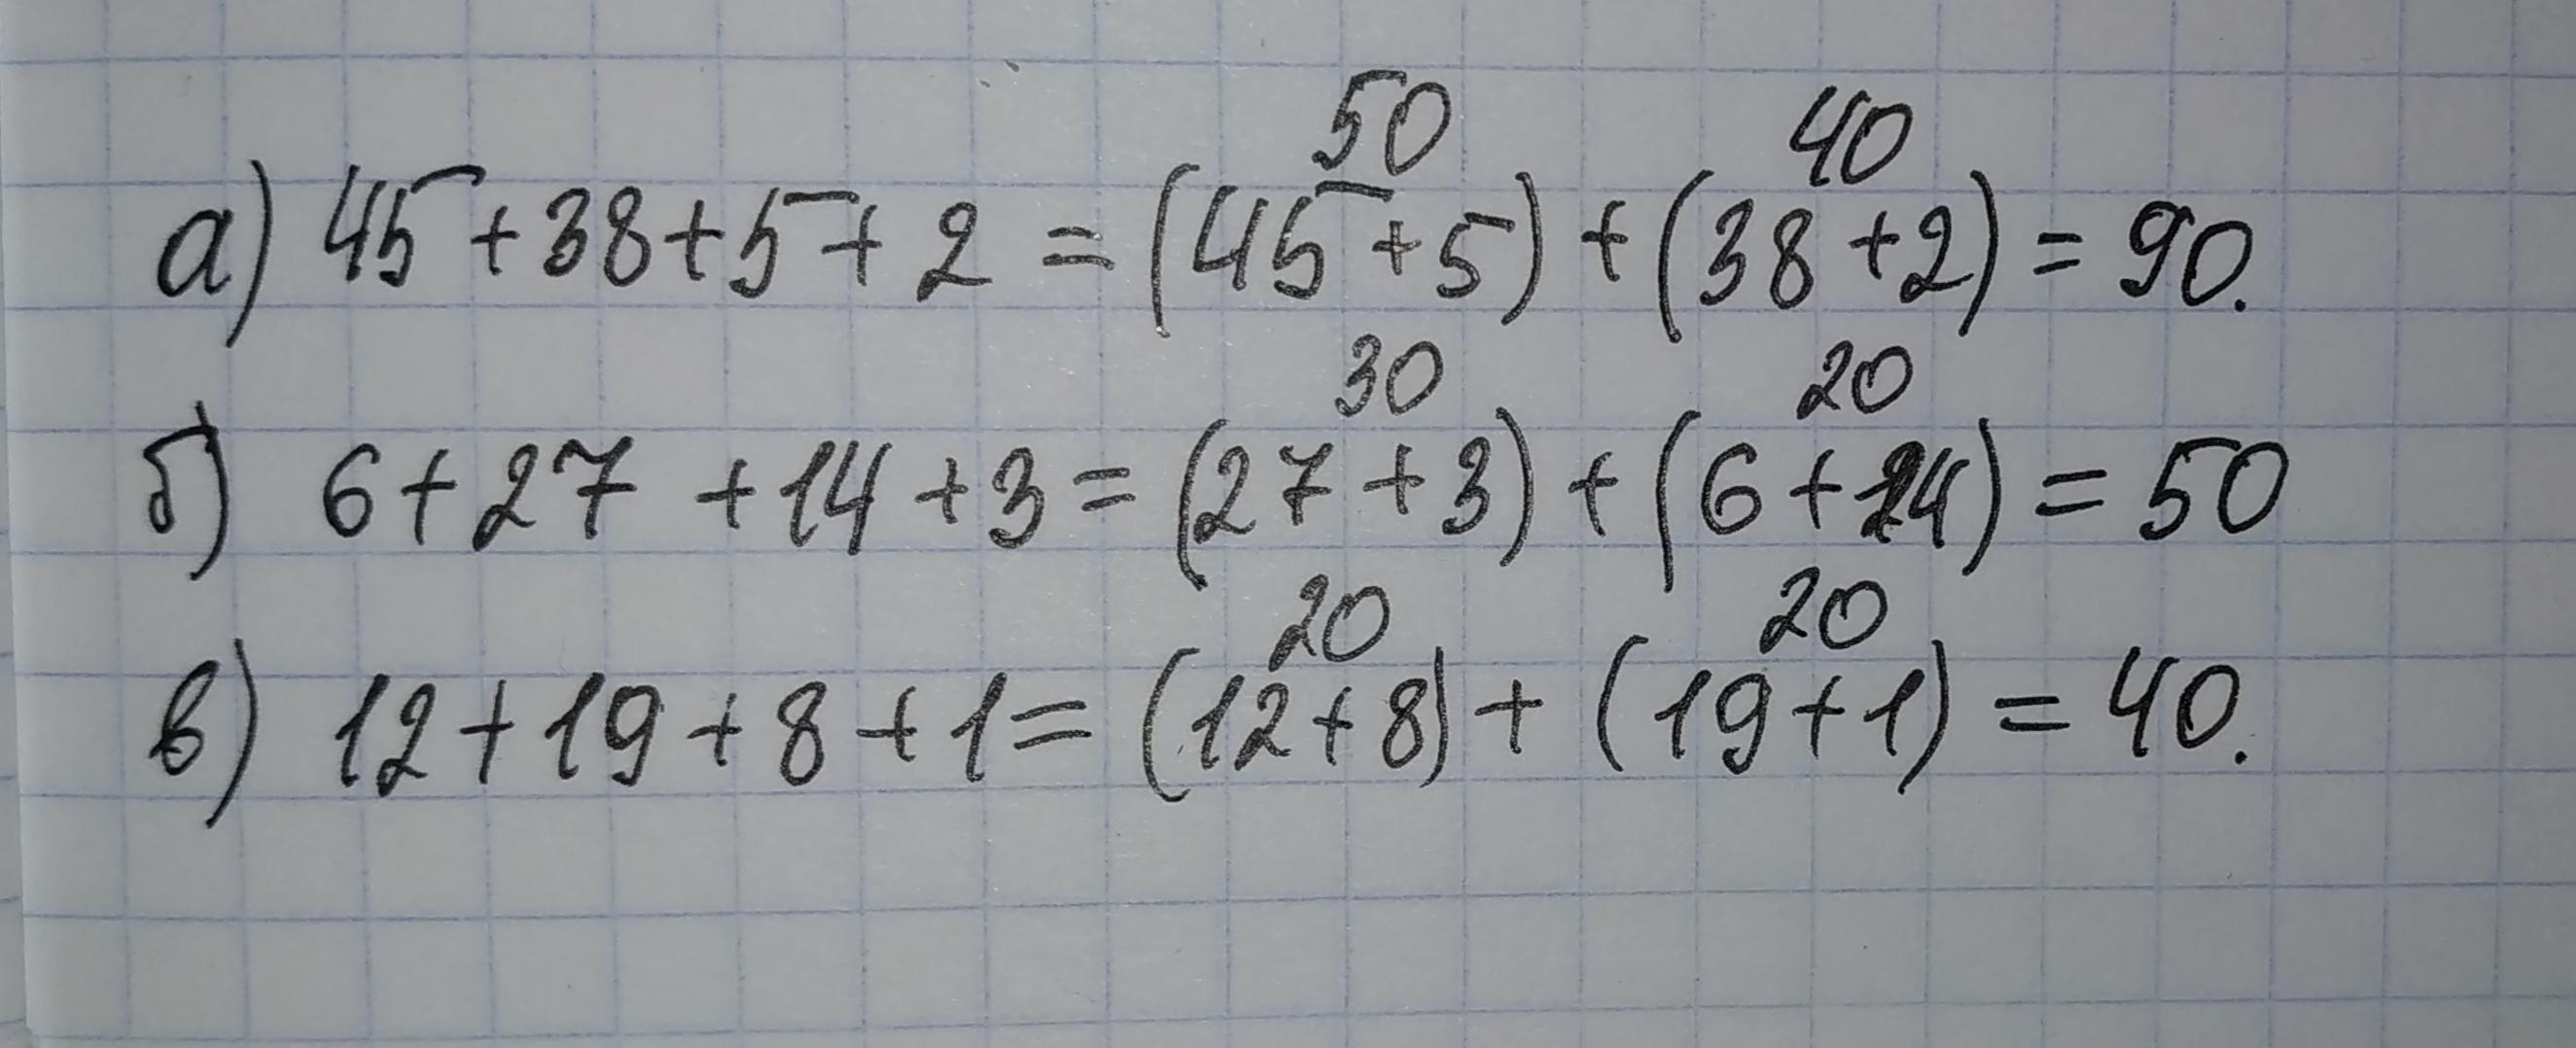 50 40
а) 45 + 38 + 5 + 2 = (45 + 5) + (38 + 2) = 90.
30 20
б) 6 + 27 + 14 + 3 = (27 + 3) + (6 + 14) = 50
20 20
в) 12 + 19 + 8 + 1 = (12 + 8) + (19 + 1) = 40.